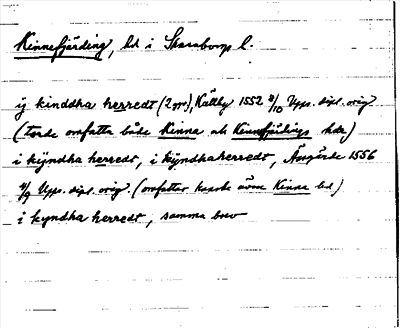 Kinnefjärding, hd i Skaraborgs l.
ij kinddha herredt (2 ggr), Kållby 1552 3/10 Upps. dipl. orig
(Torde omfatta både Kinne ock Kinnefjärdings hdr)
i kÿndha herredt, i kÿndhaherredt, 1556
4/9 Upps. dipl. orig. (omfattar kanske även Kinne hd)
i kyndha herredt, samma brev